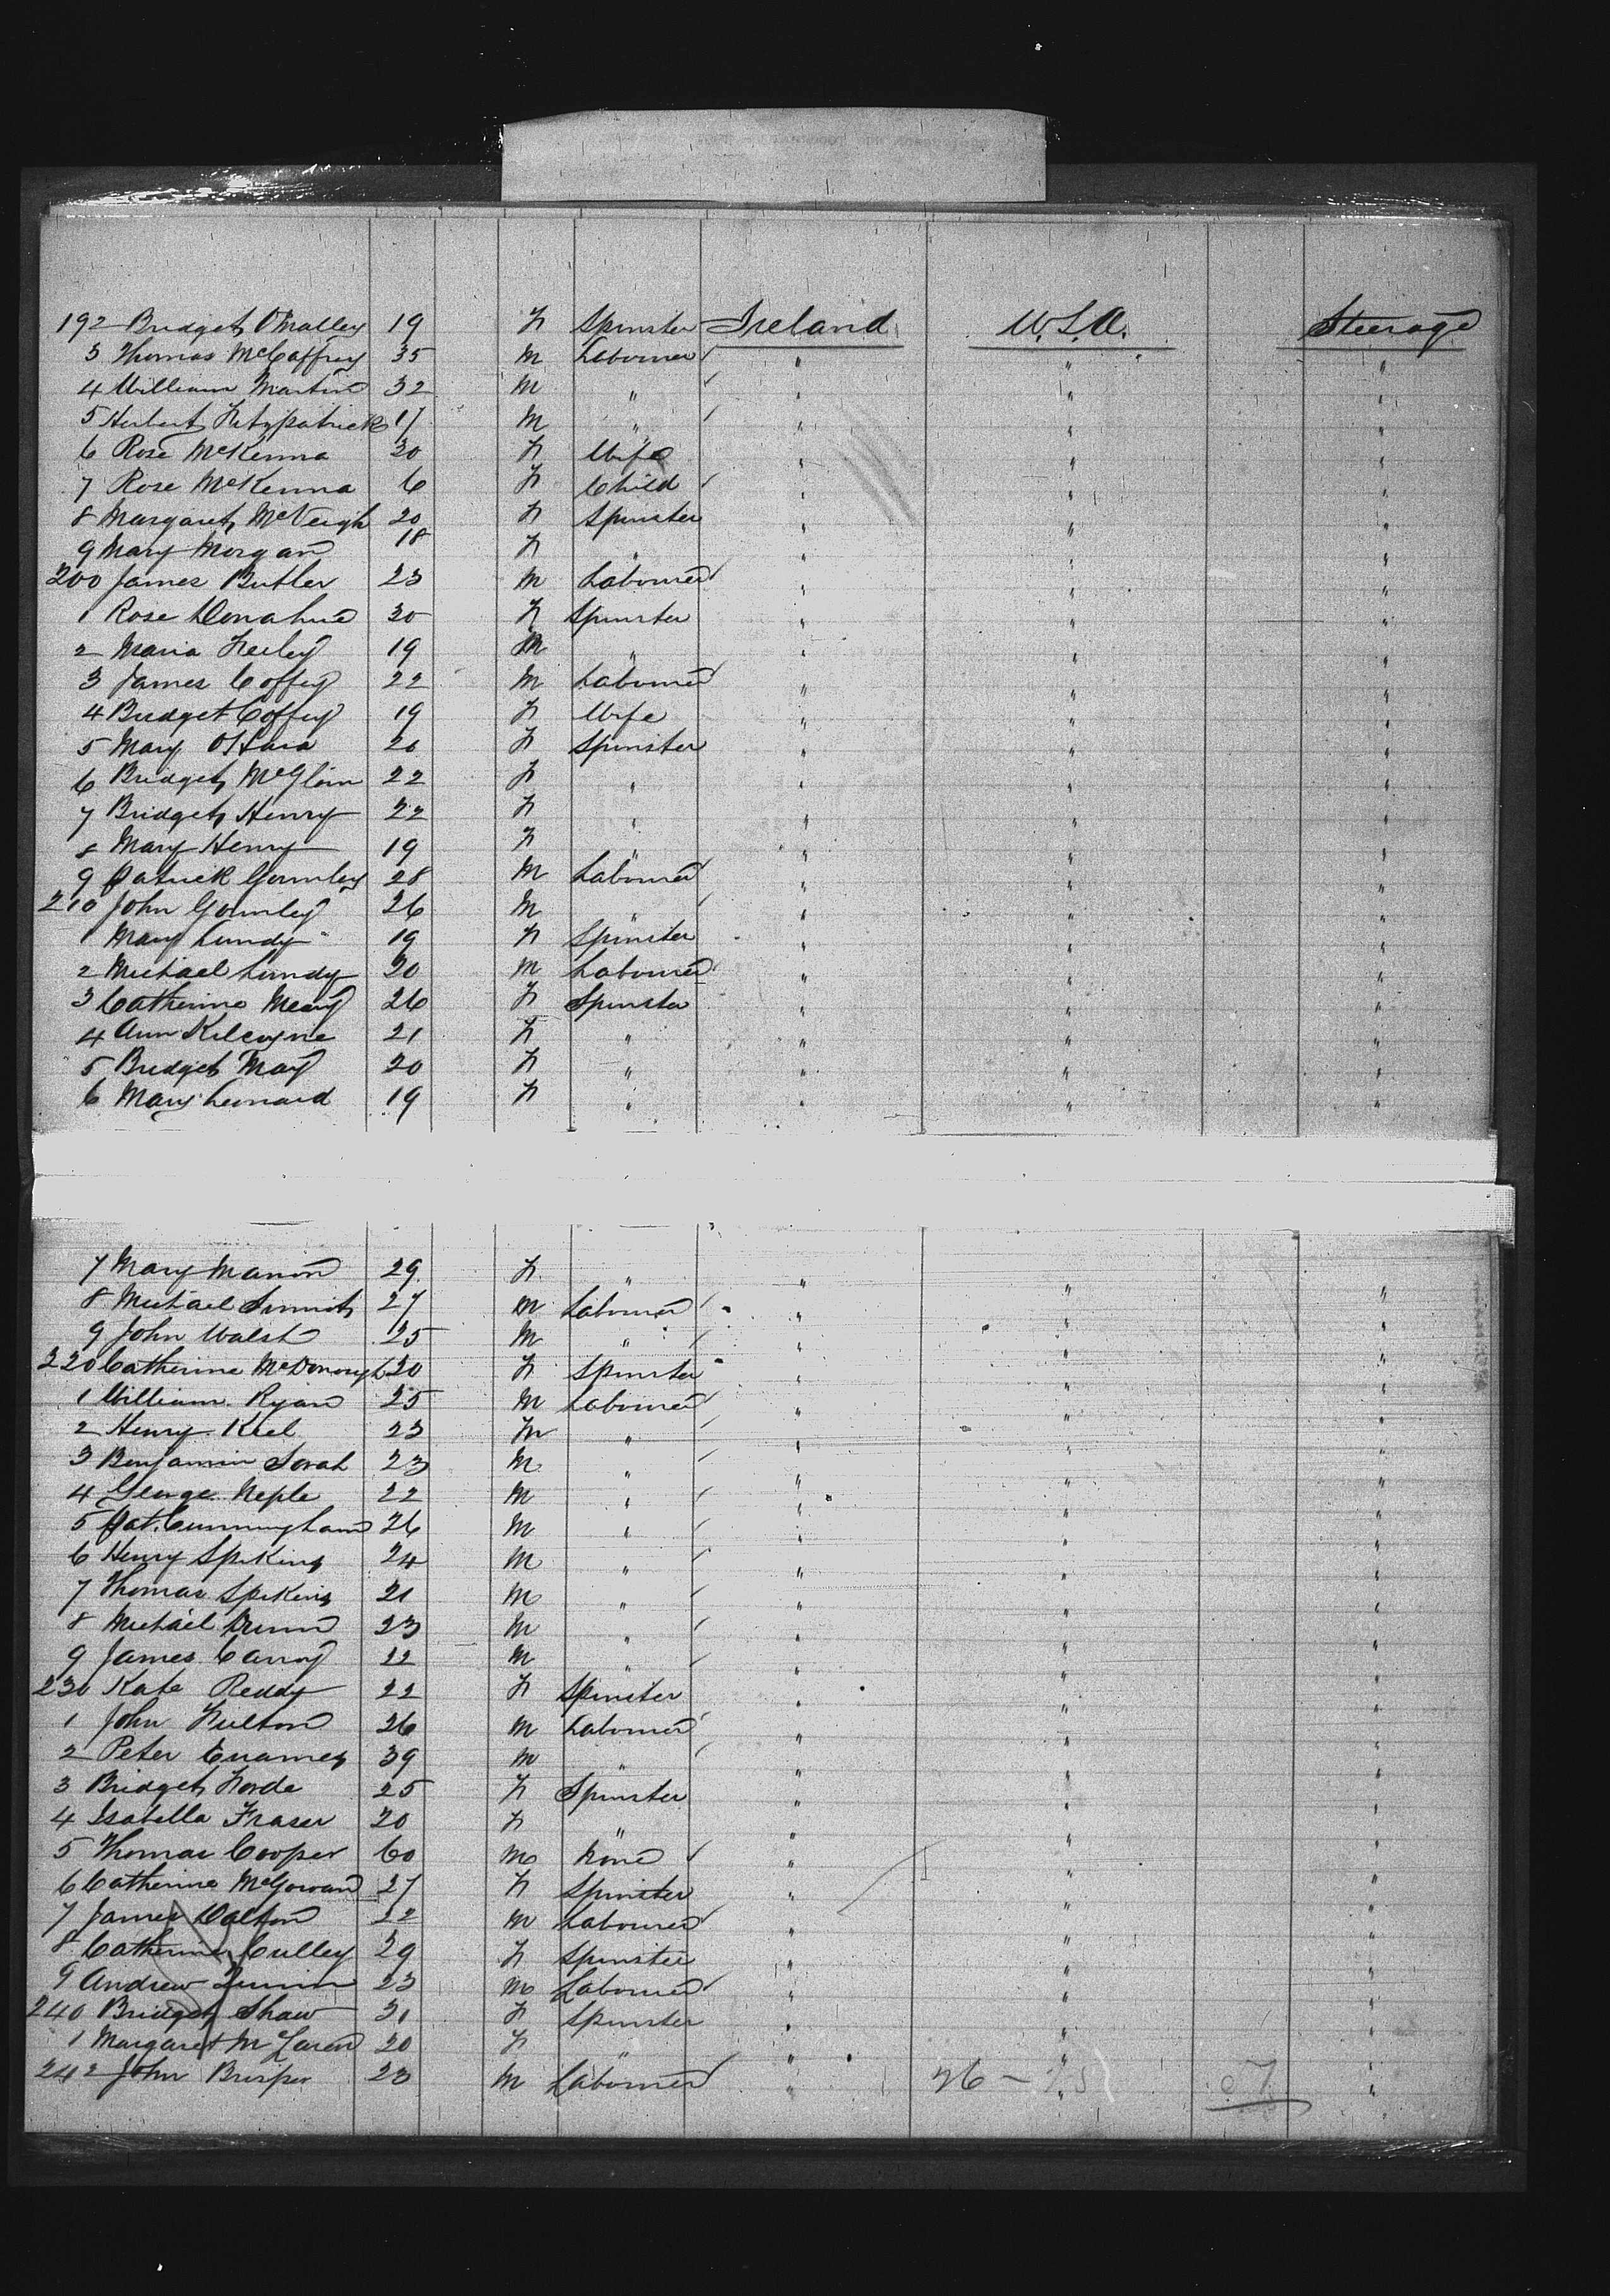 192 Bridget O'Malley 19 F Spinster Ireland U.S.A. Steerage
3 Thomas McCaffrey 35 M Labourer " " "
4 William Martin 32 M " " " "
5 Herbert Fitzpatrick 17 M " " " "
6 Rose McKenna 30 F Wife " " "
7 Rose McKenna 6 F Child " " "
8 Margaret McVeigh 20 F Spinster " " "
9 Mary Morgan 18 F " " " "
200 James Butler 23 M Labourer " " "
1 Rose Donahue 30 F Spinster " " "
2 Maria Feeley 19 M " " " "
3 James Coffey 22 M Labourer " " "
4 Bridget Coffey 19 F Wife " " "
5 Mary O'Hara 20 F Spinster " " "
6 Bridget McGloin 22 F " " " "
7 Bridget Henry 22 F " " " "
8 Mary Henry 19 F " " " "
9 Patrick Gormley 28 M Labourer " " "
210 John Gormley 26 M " " " "
1 Mary Lundy 19 F Spinster " " "
2 Michael Lundy 20 M Labourer " " "
3 Catherine 26 F Spinster " " "
4 Ann Kilcoyne 21 F " " " "
5 Bridget May 20 F " " " "
6 Mary Leonard 19 F " " " "
7 Mary Marion 29 F " " " "
8 Michael 27 M Labourer " " "
9 John Walsh 25 M " " " "
220 Catherine McDonough 20 F Spinster " " "
1 William Ryan 25 M Labourer " " "
2 Henry Keel 23 M " " " "
3 Benjamin 23 M " " " "
4 George Neple 22 M " " " "
5 Pat. Cunningham 26 M " " " "
6 Henry Spiking 24 M " " " "
7 Thomas Spiking 21 M " " " "
8 Michael Dunn 23 M " " " "
9 James Carroy 22 M " " " "
230 Kate Reddy 22 F Spinster " " "
1 John Fulton 26 M Labourer " " "
2 Peter 39 M " " " "
3 Bridget Forde 25 F Spinster " " "
4 Isabella Fraser 20 F " " " "
5 Thomas Cooper 60 M None " " "
6 Catherine McGowan 27 F Spinster " " "
7 James Dalton 22 M Labourer " " "
8 Catherine Culley 29 F Spinster " " "
9 Andrew Quinn 23 M Labourer " " "
240 Bridget Shaw 31 F Spinster " " "
1 Margaret McLaren 20 F " " " "
242 John 23 M Labourer " 26 " "